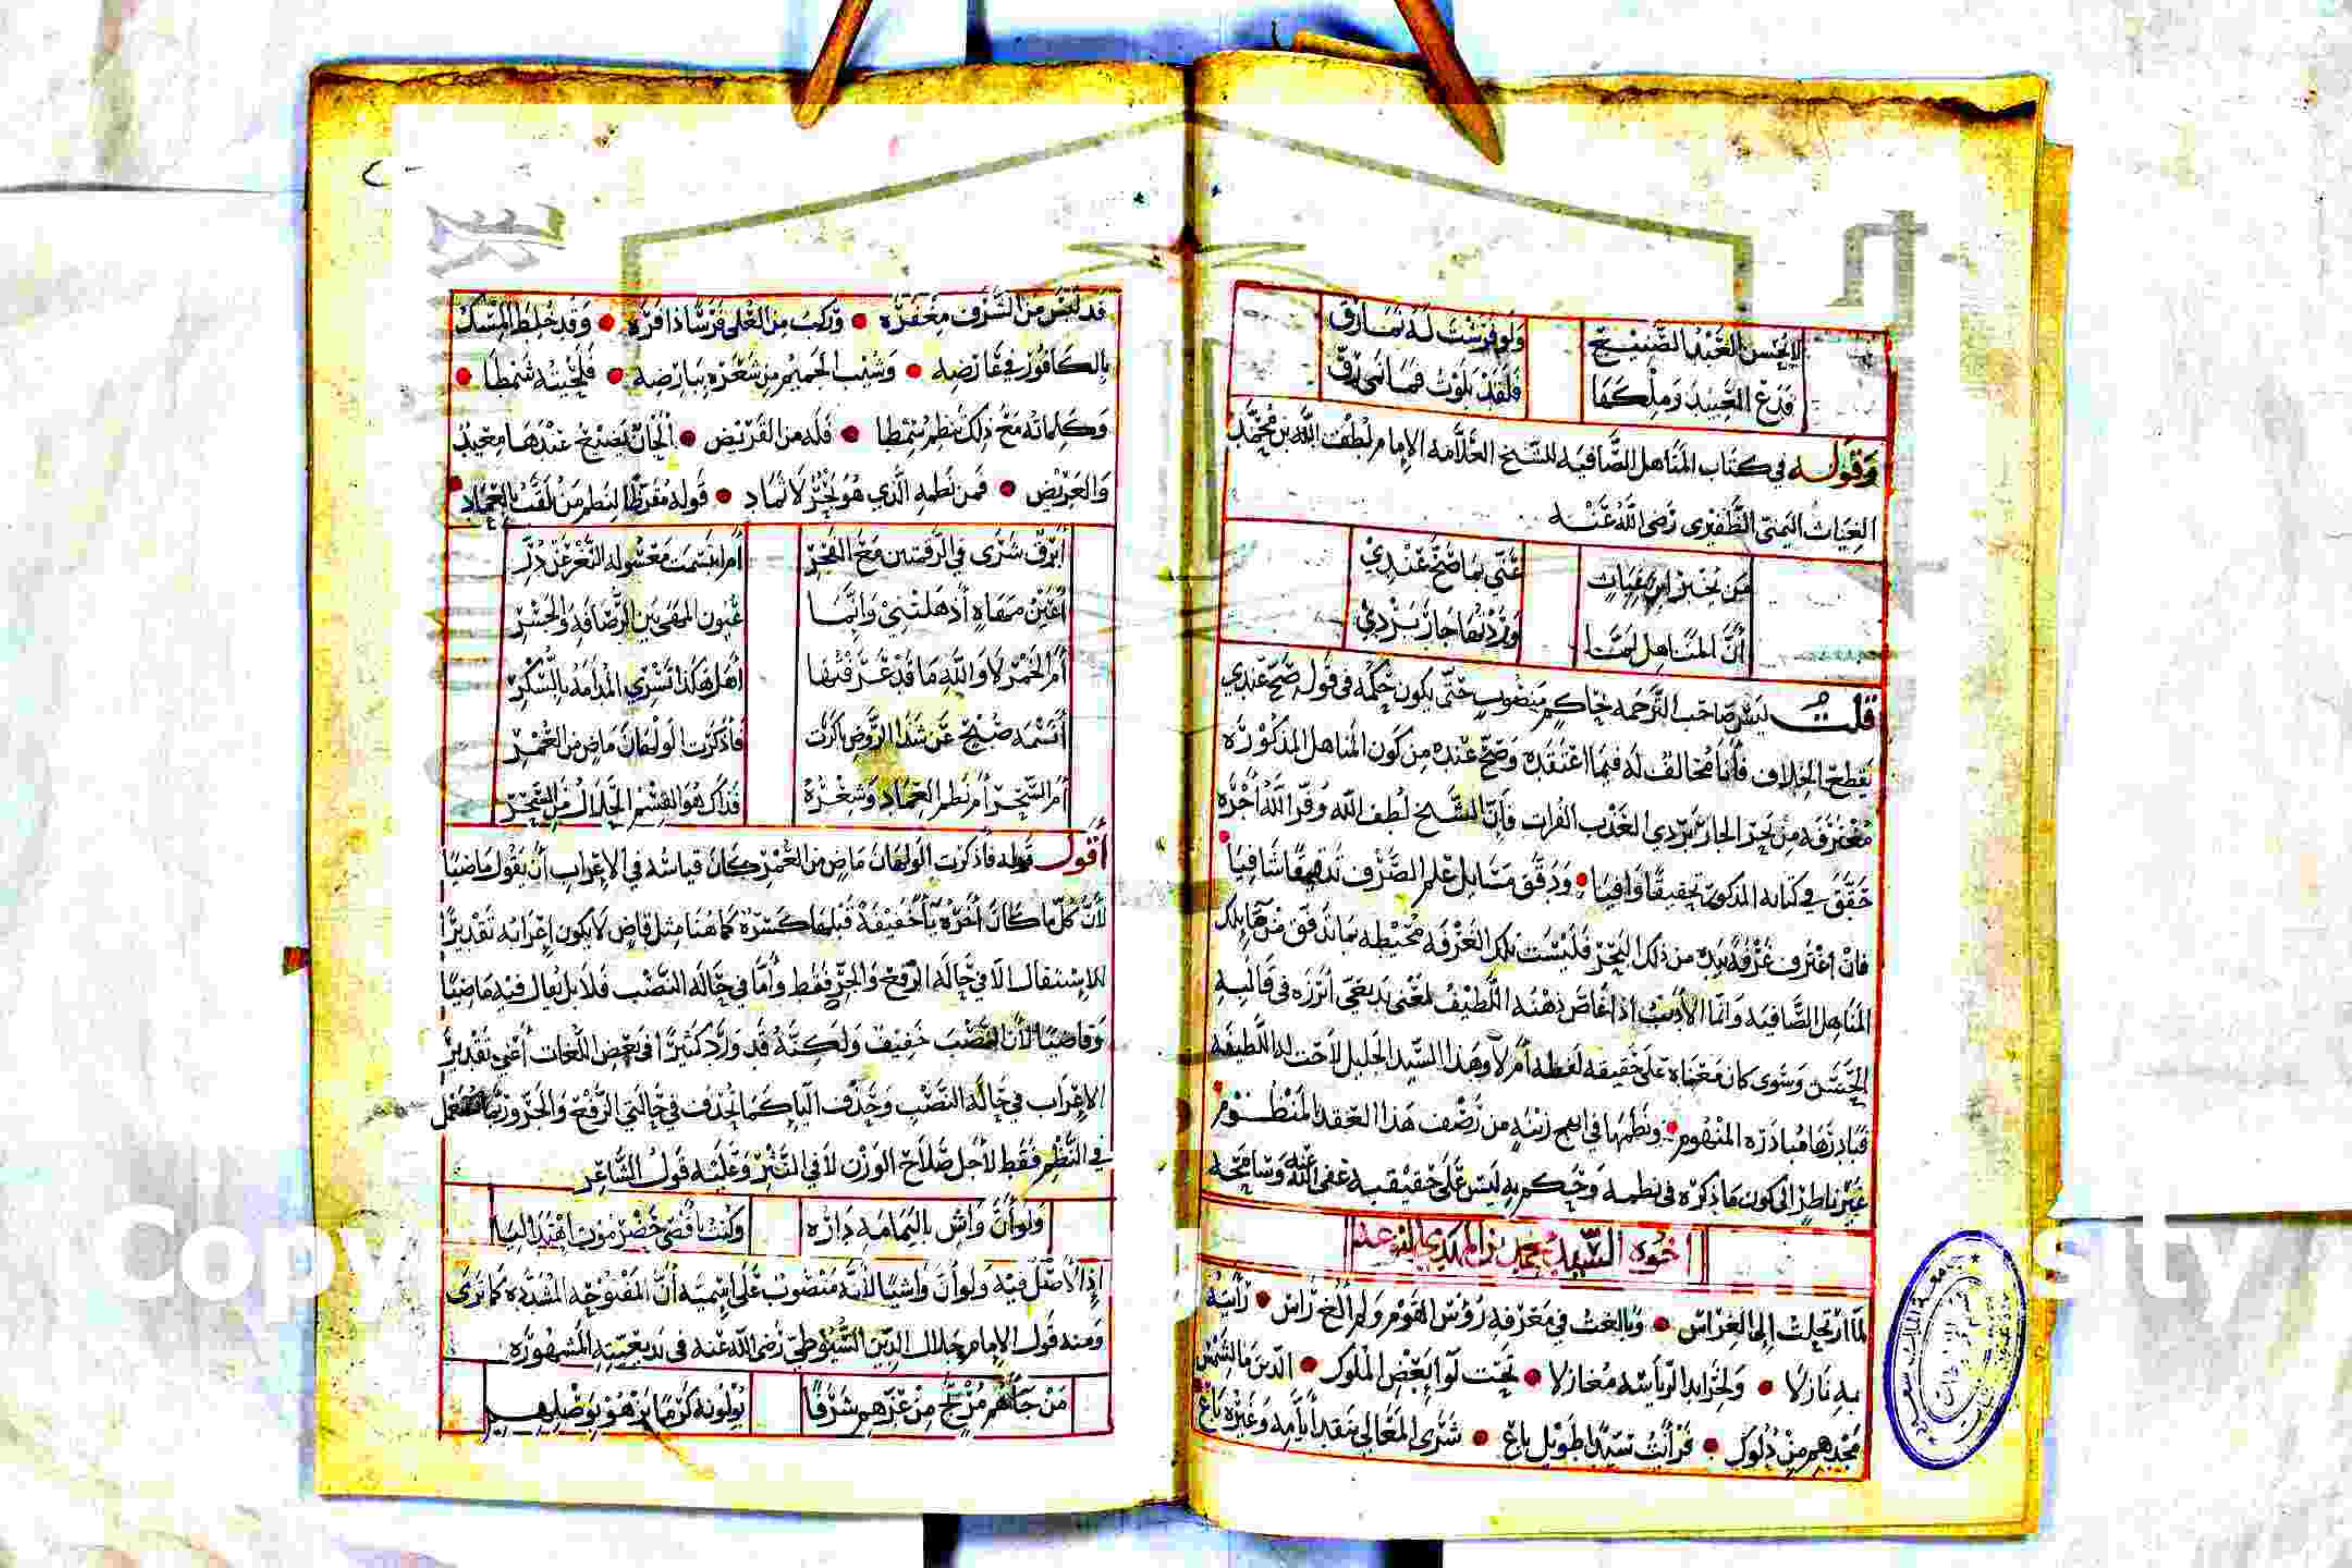 لا يحسن العبد الصنيع ولو فرشت له نمارق
فدع العبيد وملكها فلقد بلوت فما نمى رق
وقوله في كتاب المناهل الصافية للشيخ العلامة الإمام لطف الله بن محمد
الغياث اليمني الظفيري رضي الله عنه
من يخبر ابن غياث عني بما صح عندي
أن المناهل لما وردتها جاز بردي
قلت ليس صاحب الترجمة بحاكم منصوب حتى يكون حكمه في قوله صح عندي
يقطع الخلاف فأنا مخالف له فيما اعتقده وصح عنده من كون المناهل المذكورة
مغترفة من بحر الجاربردي العذب الفرات فإن الشيخ لطف الله وفر الله أجره
حقق في كتابه المذكور تحقيقا وافيا ودقق مسائل علم الصرف تدقيقا شافيا
فإن اغترف غرفة بيده من ذلك البحر فليست تلك الغرفة محيطة بما تدفق من تلك
المناهل الصافية وإنما الأديب إذا غاص ذهنه اللطيف لمعنى بديعي أبرزه في قالبه
الحسن وسوى كان معناه على حقيقة لفظه أم لا وهذا السيد الجليل لاحت له اللطيفة
فبادرها مبادرة المنهوم ونظمها في أبهج زينة من رصف هذا العقد المنظوم
غير ناظر إلى كون ما ذكره في نظمه وحكم به ليس على حقيقته عفى الله عنه وسامحه
أخوه السيد محمد بن المهدي
لما ارتحلت إلى الغراس وبالغت في معرفة رؤس القوم ولم ألغ راس رأيته
به نازلا ولخرايد الرياسة مغازلا تحت لوا بعض الملوك الذين ما لشمس
مجدهم من دلوك فرأيت سيدا طويل باع شرى المعالي بنقد أيامه وغيره باع
قد لبس من الشرف مغفره وركب من العلى فرسا ذا فره وقد خلط المسك
بالكافور في عارضه وشيب الحميم من شعره ببارضه فلحيته شمطا
وكلماته مع ذلك بنظم سمطا فله من القريض ألحان يصيخ عندها معبد
والغريض فمن نظمه الذي هو بحر لا ثماد قوله مقرظا لنظم من لقب بالعماد
أبرق شرى في الرقمتين مع الفجر أم ابتسمت معشوله الثغر عن در
أعين مهاة أذهلتني وإنما عيون المهى بين الرصافة والجسر
أم الخمر لا والله ما قد عرفتها أهل هكذا تسري المدامة بالسكر
أنسمة صبح عن شذا الروض باكرت فأذكرت الولهان ماض من العمر
أم السحر أم نظم العماد وشعره فذاك هو القسم الحلال من السحر
أقول قوله فأذكرت الولهان ماض من العمر كان قياسه في الإعراب أن يقول ماضيا
لأن كل ما كان آخره يا خفيفة قبلها كسرة كما هنا مثل قاض لا يكون إعرابه تقديرا
للاستثقال إلا في حالة الرفع والجر فقط وأما في حالة النصب فلا بل يقال فيه ماضيا
وقاضيا لأن النصب خفيف ولكنه قد ورد كثيرا في بعض اللغات أعني تقدير
الإعراب في حالة النصب وحذف اليا كما تحذف في حالتي الرفع والجر وربما
في النظم فقط لأجل صلاح الوزن لا في النثر وعليه قول الشاعر
ولو أن واش باليمامة داره وكنت قصى حضرموت اهتدا ليا
إذ الأصل فيه ولو أن واشيا لأنه منصوب على اسمية أن المفتوحة المشددة كما ترى
ومنه قول الإمام جلال الدين السيوطي رضي الله عنه في بديعيته المشهورة
من جاءهم مرتج من عزهم شرفا يولونه كرما يزهو بوصلهم